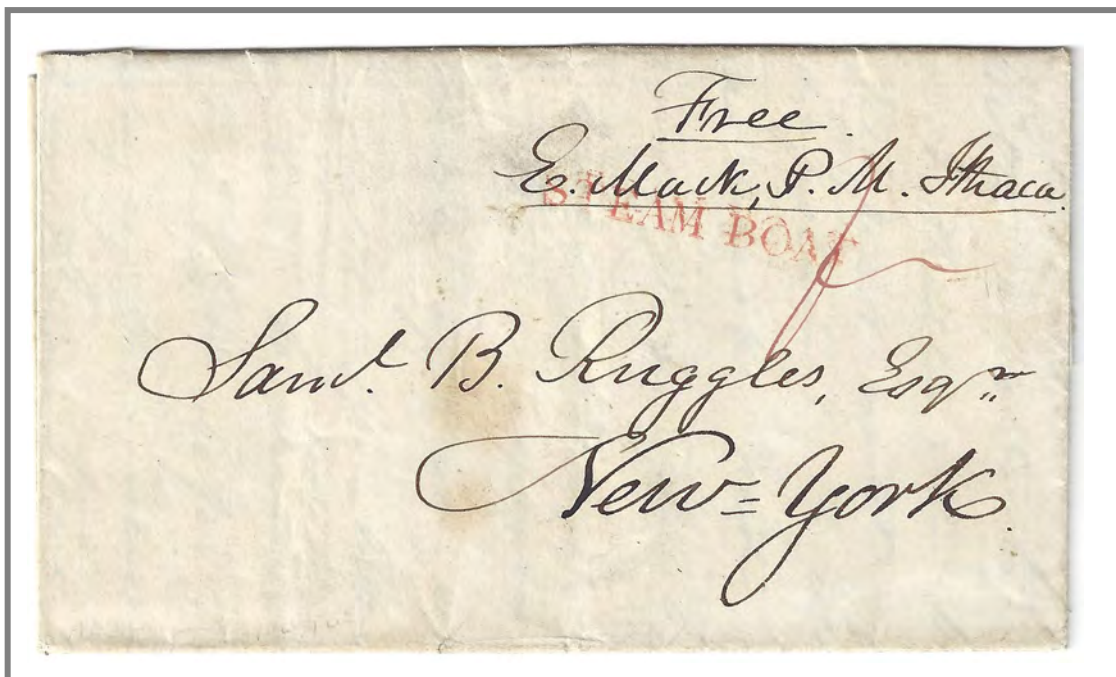 Free.
E. Mack, P. M. Ithaca.
STEAM BOAT
Saml. B. Ruggles, Esqr.
New=York.